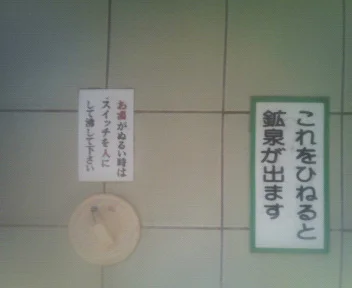 これをひねると
鉱泉が出ます
お湯がぬるい時は
スイッチを入に
して沸して下さい